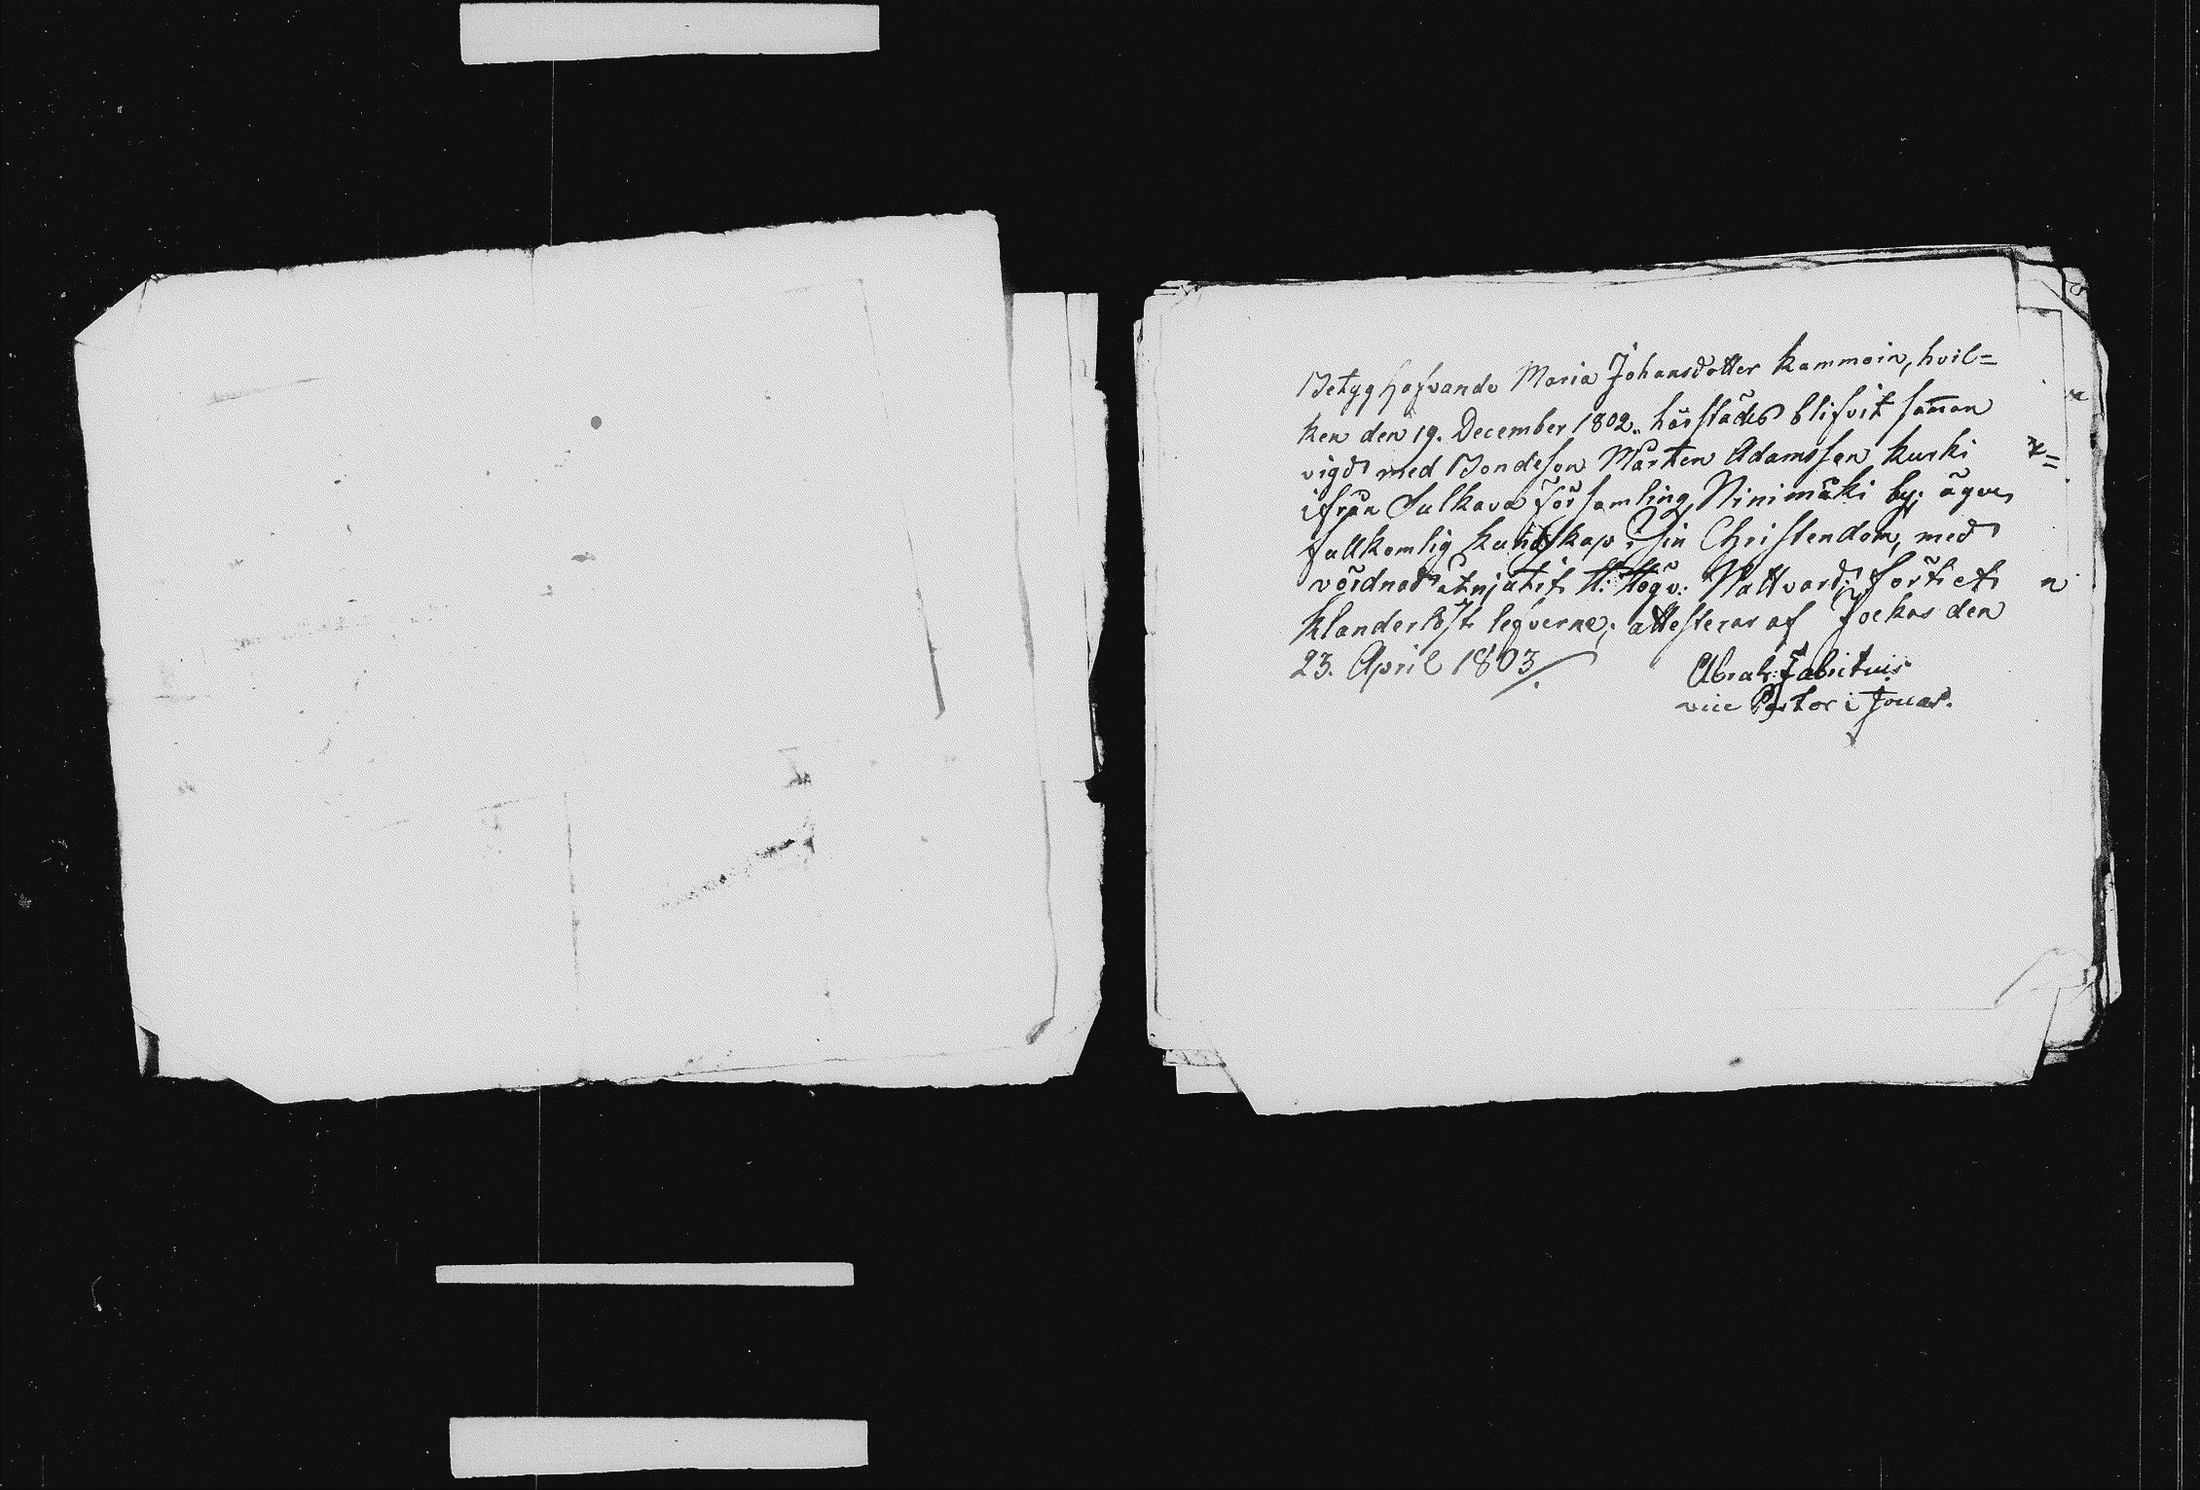 Betyghafvande Maria Johansdotter Kammoin, hvil=
ken den 19. December 1802. härstädes blifvit samman
vigd med Bondeson Mårten Adamsson Kurki
ifrån Sulkava Församling Ninimäki by; äger
fullkomlig kundskap i sin Christendom, med
vördnad åtnjutit H: Högv: Nattvard; fört et
klanderlöst lefverne; attesterar af Jockas den
23. April 1803
Abrah: Fabritius
vice Pastor i Jouas.